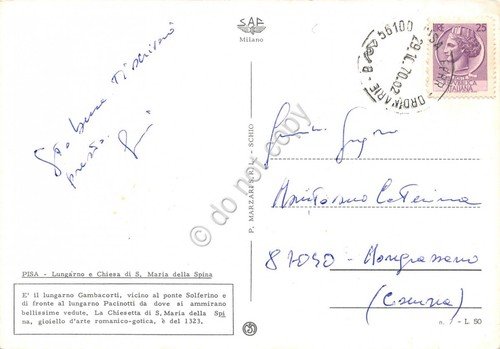 SAF
Milano
Sto bene ti scriverò
presto.
LIRE 25
REPUBBLICA
ITALIANA
56100 PISA
29.IX.70.02
ORDINARIE
© do not copy
P. MARZARI S.R.L. - SCHIO
Caterina
87040 - Mongrassano
(Cosenza)
PISA - Lungarno e Chiesa di S. Maria della Spina
E' il lungarno Gambacorti, vicino al ponte Solferino e
di fronte al lungarno Pacinotti da dove si ammirano
bellissime vedute. La Chiesetta di S. Maria della Spi
na, gioiello d'arte romanico-gotica, è del 1323.
n. - L. 50